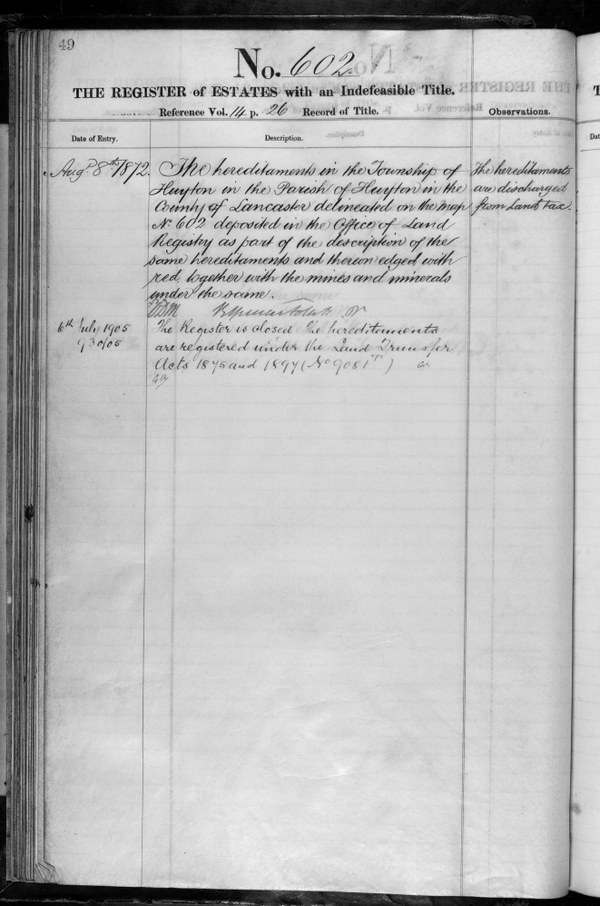 49
No. 602.
THE REGISTER of ESTATES with an Indefeasible Title.
Reference Vol. 14 p. 26 Record of Title.
Observations.
Date of Entry.
Description.
Augt 8th 1872.
The hereditaments in the Township of
Huyton in the Parish of Huyton in the
County of Lancaster delineated on the map
No. 602 deposited in the Office of Land
Registry as part of the description of the
same hereditaments and thereon edged with
red, together with the mines and minerals
under the same.
The hereditaments
are discharged
from Land tax.
6th July 1905
The Register is closed The hereditaments
are registered under the Land Transfer
Acts 1875 and 1897 (No 9081